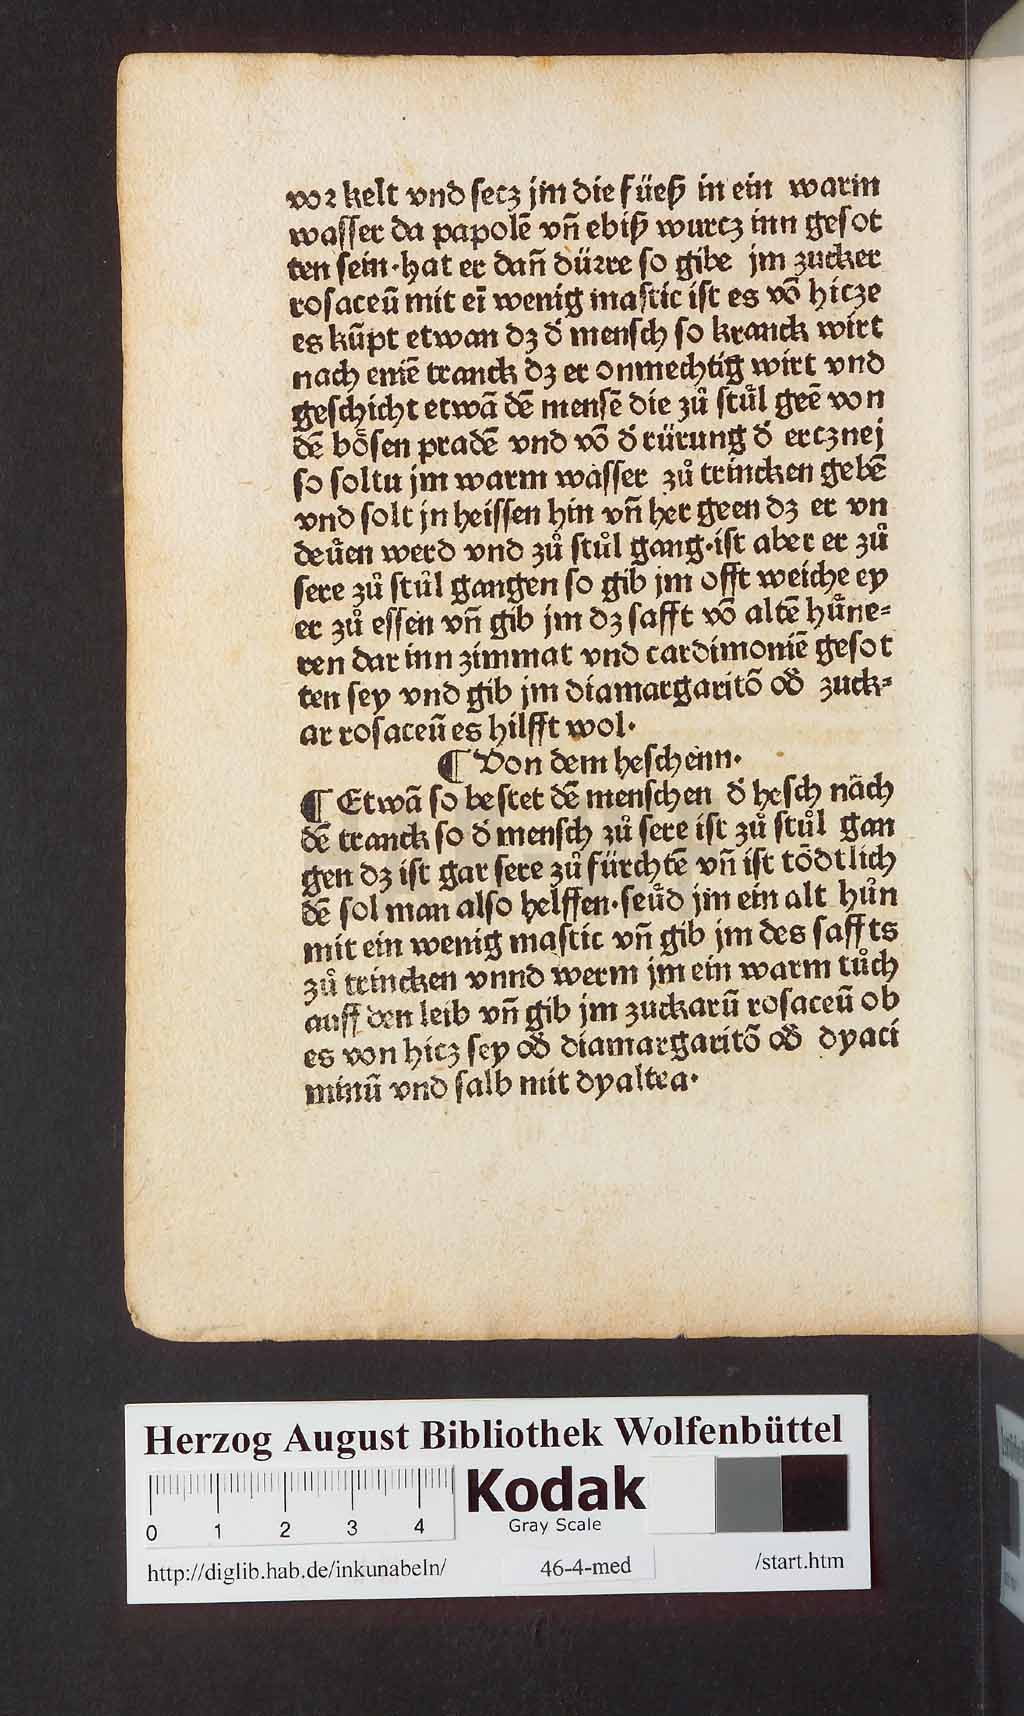 voꝛ kelt vnd setz jm die füeß in ein warm
wasser da papolē vn̄ ebiß wurtz inn gesot
ten sein·hat er dan̄ düꝛre so gibe jm zucker
rosaceū mit eī wenig mastic ist es vō hicze
es kūpt etwan dz d̓ mensch so kranck wirt
nach emē tranck dz er onmechtig wirt vnd
geschicht etwā dē mensē die zů stůl geē von
dē bösen pradē vnd vō d̓ rürung d̓ ercznej
so soltu jm warm wasser zů trincken gebē
vnd solt jn heissen hin vn̄ her geen dz er vn
deüen werd vnd zů stůl gang·ist aber er zů
sere zů stůl gangen so gib jm offt weiche ey
er zů essen vn̄ gib jm dz safft vō altē hůne⸗
ren dar inn zimmat vnd cardimoniē gesot
ten sey vnd gib jm diamargaritō od̓ zuck⸗
ar rosaceū es hilfft wol·
¶ Von dem heschenn·
¶ Etwā so bestet dē menschen d̓ hesch nāch
dē tranck so d̓ mensch zů sere ist zů stůl gan
gen dz ist gar sere zů fürchtē vn̄ ist tödtlich
dē sol man also helffen·seüd jm ein alt hůn
mit ein wenig mastic vn̄ gib jm des saffts
zů trincken vnnd werm jm ein warm tůch
auff den leib vn̄ gib jm zuckarū rosaceū ob
es von hicz sey od̓ diamargaritō od̓ dyaci
minū vnd salb mit dyaltea·
Herzog August Bibliothek Wolfenbüttel
0 1 2 3 4
Kodak
Gray Scale
http://diglib.hab.de/inkunabeln/ 46-4-med /start.htm